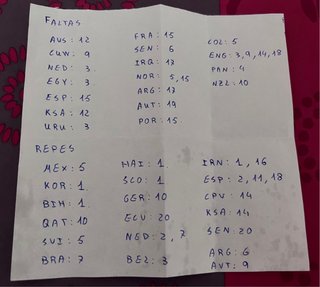 FALTAS
AUS: 12
CUW: 9
NED: 3
EGY: 3
ESP: 15
KSA: 12
URU: 3
FRA: 15
SEN: 6
IRQ: 17
NOR: 5, 15
ARG: 17
AUT: 19
POR: 15
COL: 5
ENG: 3, 9, 14, 18
PAN: 4
NZL: 10
REPES
MEX: 5
KOR: 1
BIH: 1
QAT: 10
SUI: 5
BRA: 7
HAI: 1
SCO: 1
GER: 10
ECU: 20
NED: 2, 7
BEL: 3
IRN: 1, 16
ESP: 2, 11, 18
CPV: 14
KSA: 14
SEN: 20
ARG: 6
AUT: 9